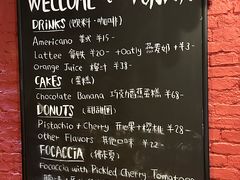 WELCOME
DRINKS (饮料·咖啡)
Americano 美式 ¥15-
lattee 拿铁 ¥20- +Oatly 燕麦奶 +¥3-
Orange Juice 橙汁 ¥38-
CAKES (蛋糕)
Chocolate Banana 巧克力香蕉蛋糕 ¥68-
DONUTS (甜甜圈)
Pistachio + Cherry 开心果+樱桃 ¥28-
other Flavors 其他口味 ¥22-
FOCACCIA
Focaccia with Pickled Cherry Tomatoes